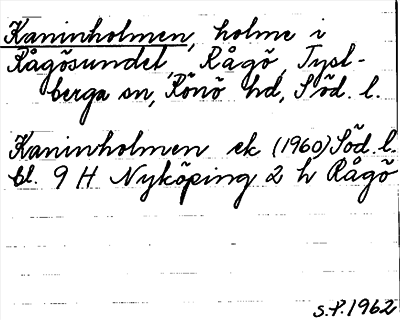 Kaninholmen, holme i
Rågösundet, Rågö, Tyst-
berga sn, Rönö hd, Söd. l.
Kaninholmen ek (1960) Söd. l.
bl. 9 H Nyköping 2 h Rågö
s.f. 1962